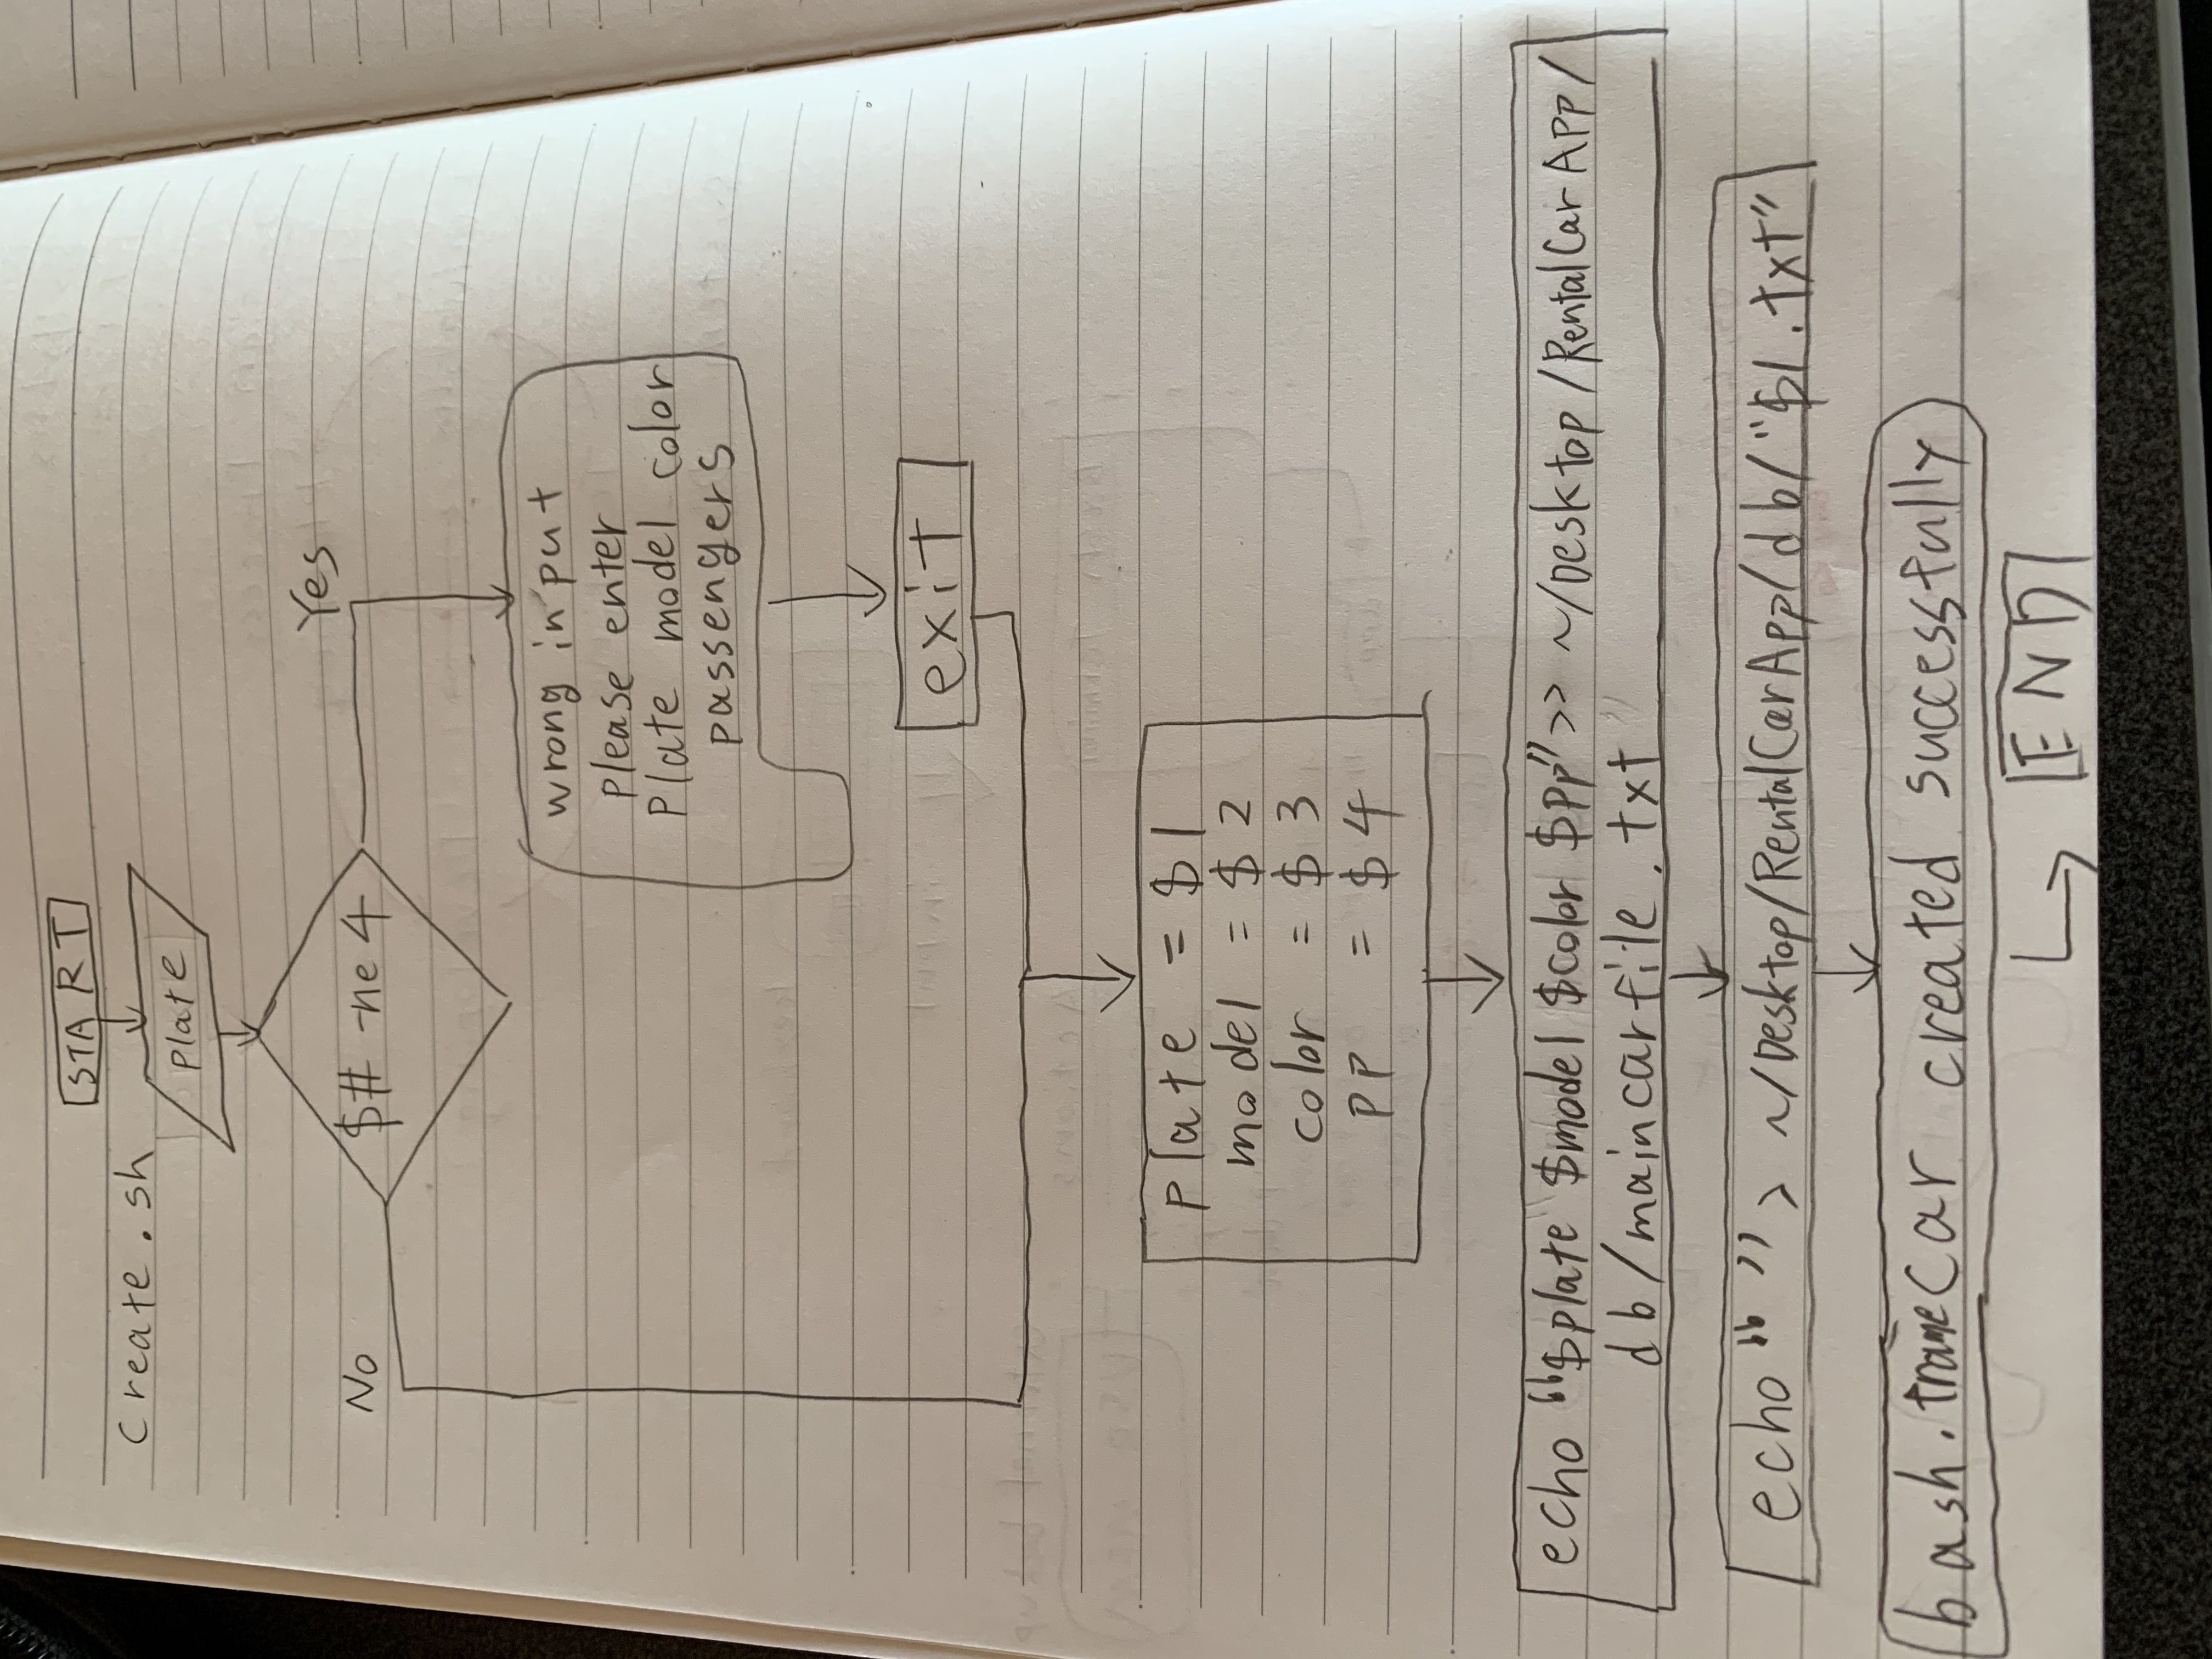 START
create.sh
Plate
$# -ne 4
Yes
No
wrong input
please enter
Plate model color
passengers
exit
Plate = $1
model = $2
color = $3
PP = $4
echo "$plate $model $color $PP" >> ~/Desktop/RentalCarAPP/
db/maincarfile.txt
echo "" > ~/Desktop/RentalCarApp/db/"$1.txt"
bash. Car created successfully
END